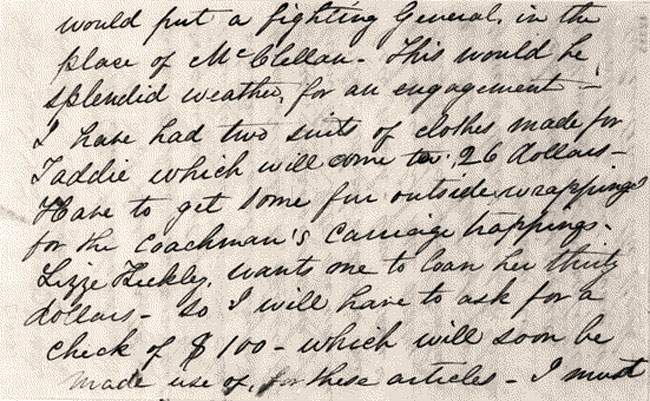 would put a fighting General, in the
place of McClellan - This would be
splendid weather, for an engagement -
I have had two suits of clothes made for
Taddie which will come to 26 dollars -
Have to get some fur outside wrappings
for the Coachman's Carriage trappings -
Lizzie Keckley, wants me to loan her thirty
dollars - so I will have to ask for a
check of $100 - which will soon be
made use of, for these articles - I must